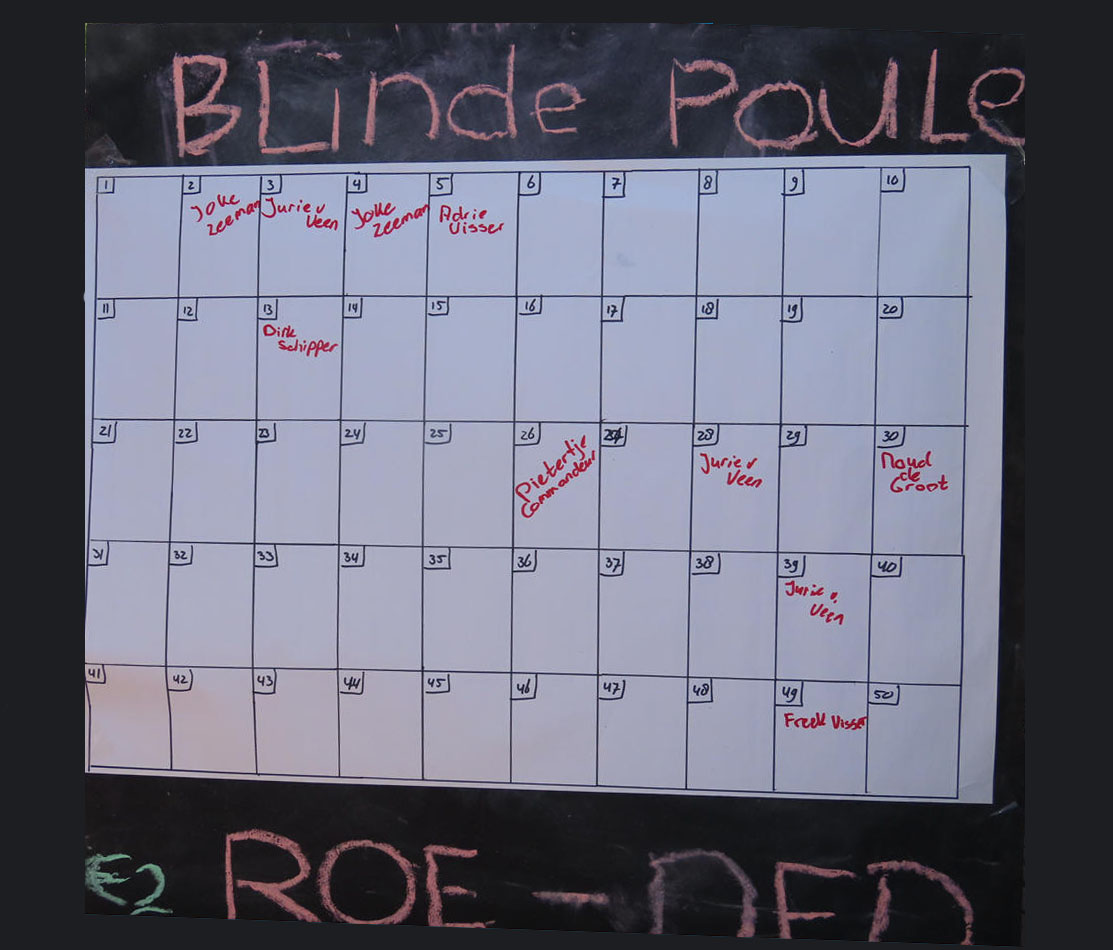 BLinde Poule
1 2 3 4 5 6 7 8 9 10
Joke Jurie v Joke Adrie
Zeeman Veen Zeeman Visser
11 12 13 14 15 16 17 18 19 20
Dirk
Schipper
21 22 23 24 25 26 27 28 29 30
Pietertje Jurie v Naud
Commandeur Veen de
Groot
31 32 33 34 35 36 37 38 39 40
Jurie v.
Veen
41 42 43 44 45 46 47 48 49 50
Freek Visser
€2 ROE - DED